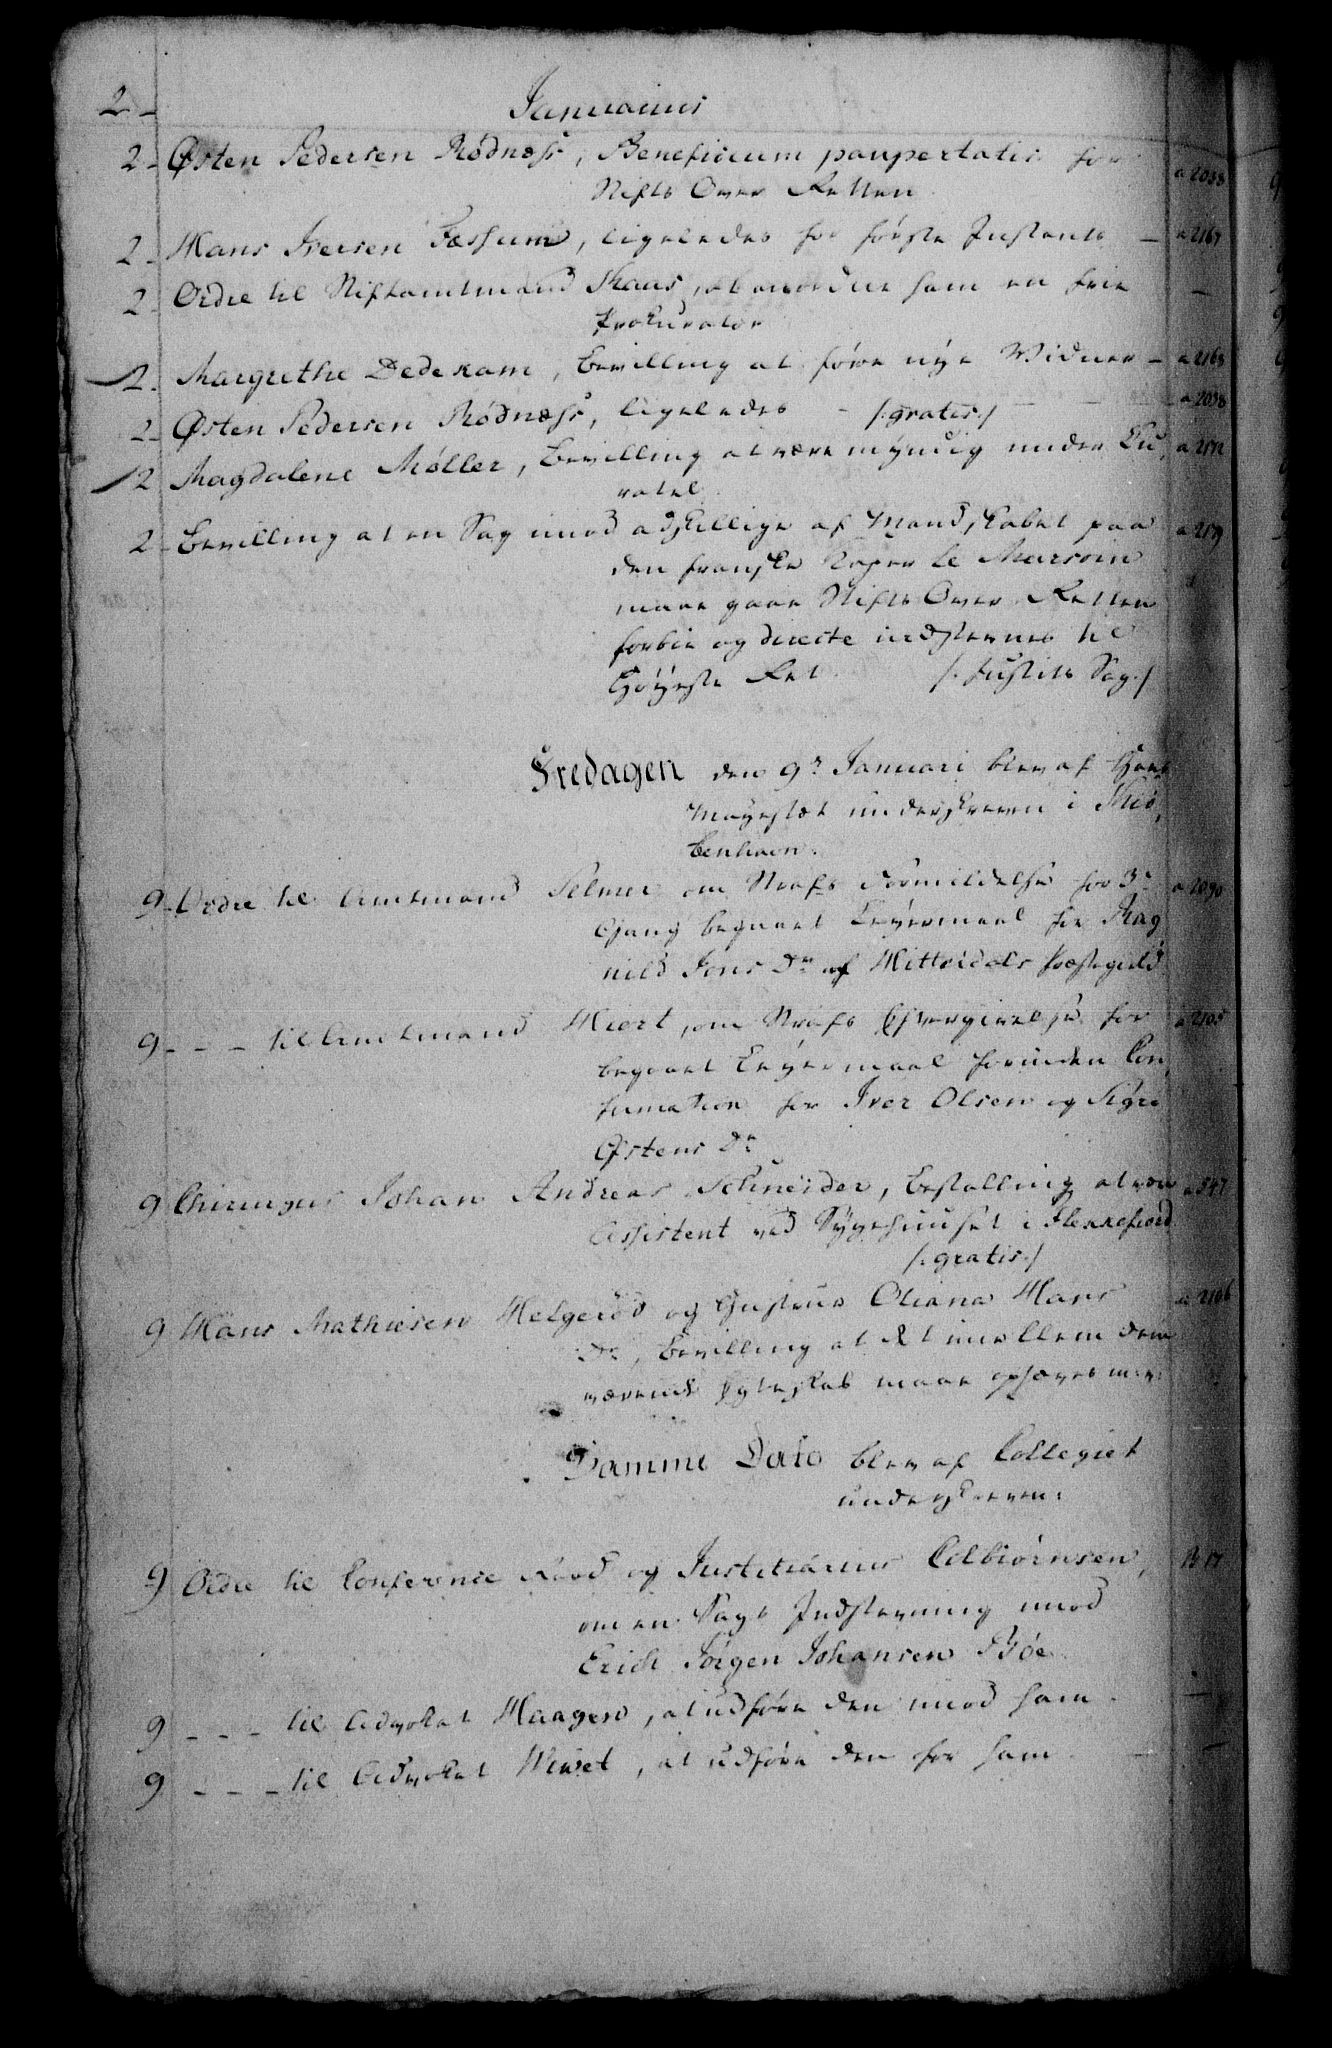 2 -
Januarius
2 - Østen Pedersen Rødnæss, Beneficium paupertatis for a 2038
Stifts Over Retten
2 - Hans Iversen Fossum, ligeledes for første Instants - a 2167
2 - Ordre til Stiftamtmand Kaas, at anordne ham en frie -
Prokurator
2. Margrethe Dedekam, Bevilling at føre nye Vidner - a 2168
2 - Østen Pedersen Rødnæss, ligeledes - /: gratis :/ - - a 2038
2 Magdalene Møller, Bevilling at være myndig under Cu,
ratel
2 - Bevilling at en Sag imod adskillige af Mandskabet paa
den franske Kaper le Marsoin
maae gaae Stifts Over Retten
forbie og directe indstevnes til
Høyeste Ret /: Justits Sag :/
Fredagen den 9de Januari blev af Hans
Mayestæt underskreven i Kiø,
benhavn.
9 - Ordre til Amtmand Selmer om Strafs Formildelse for 3de a 2090
Gang begaaet Leyermaal for Rag
nild Jons Dr af Hitterdals Præstegield
9 - - - til Amtmand Hiort, om Strafs Eftergivelse for a 2105
begaaet Leyermaal forinden Con,
firmation for Iver Olsen og Sigri
Østens Dr
9 Chirurgus Johan Andreas Schneider, Bestalling at være a 547
Assistent ved Sygehuuset i Flekkefiord
/: gratis :/
9 Hans Mathiesen Helgerød og Hustrue Oliana Hans a 2106
Dr, Bevilling at det imellem dem
værende Egteskab maae ophæves m: v:
Samme Dato blev af Collegiet
underskreven:
9 Ordre til Conference Raad og Justitiarius Colbiørnsen, B 17
om en Sags Indstevning imod
Erich Jørgen Johansen Bøe
9 - - - til Advokat Haagen, at udføre den imod ham - -
9 - - - til Advokat Wivet, at udføre den for ham - -